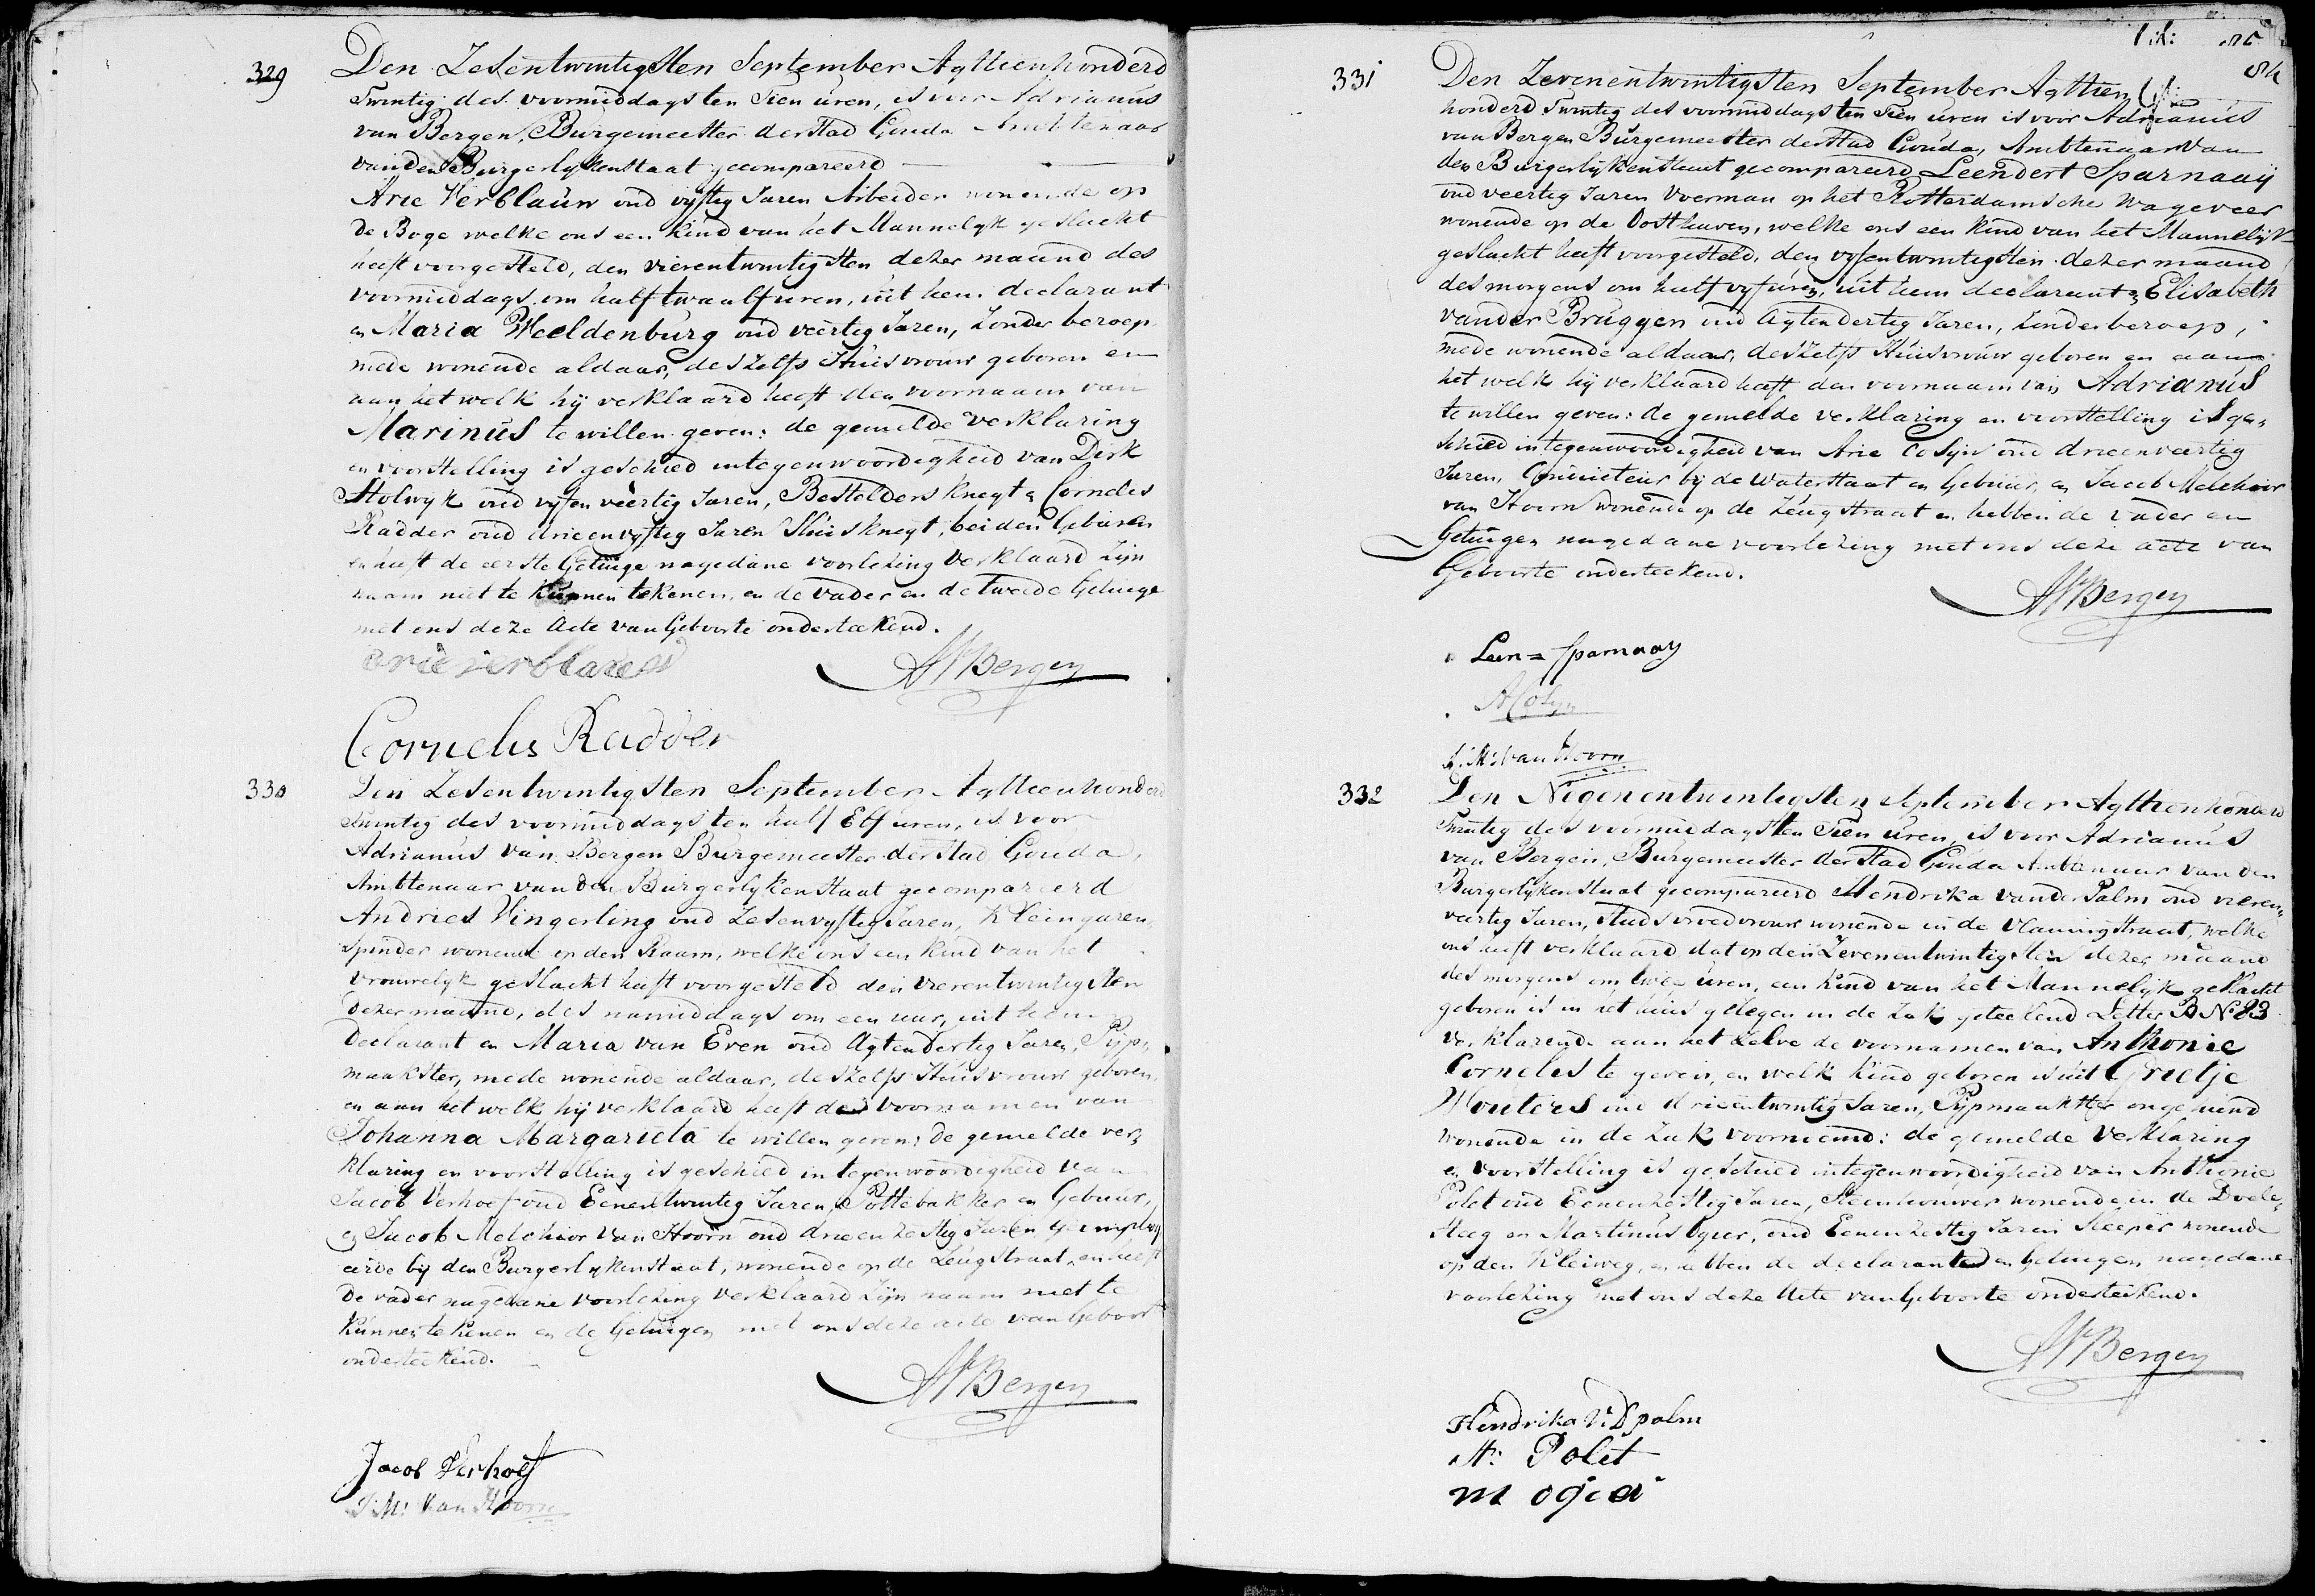 329
Den Zesentwintigsten September Agttienhonderd
Twintig des voormiddags ten Tien uren, is voor Adrianus
van Bergen, Burgemeester der Stad Gouda Ambtenaar
van den Burgerlykenstaat gecompareerd
Arie Verblaúw oud vyftig Jaren Arbeider wonende op
de Boge welke ons een Kind van het Mannelyk geslacht
heeft voorgesteld, den vierentwintigsten dezer maand des
voormiddags om half twaalf uren, uit hem declarant
en Maria Weeldenburg oud veertig Jaren, Zonder beroep
mede wonende aldaar, deszelfs Huisvrouw geboren en
aan het welk hij verklaard heeft den voornaam van
Marinús te willen geven: de gemelde verklaring
en voorstelling is geschied integenwoordigheid van Dirk
Stolwyk oud vyfenveertig Jaren, Bestelders Knegt & Cornelis
Radder oud drieenvyftig Jaren Huisknegt, beiden Geburen
en heeft de eerste Getuige nagedane voorlezing Verklaard Zijn
naam niet te kunnen tekenen, en de vader en de tweede Getuige
met ons deze Acte van Geboorte onderteekend.
arie verblauw
AVBergen
Cornelis Radder
330
Den Zesentwintigsten September Agttienhonderd
Twintig des voormiddags ten half Elf uren, is voor
Adrianus van Bergen Burgemeester der Stad Gouda,
Ambtenaar van den Burgerlyken Staat gecompareerd
Andries Vingerling oud Zesenvyftig Jaren, Kleingaren,
Spinder wonende op den Raam, welke ons een Kind van het
vrouwelyk geslacht heeft voorgesteld den vierentwintigsten
dezer maand, des namiddags om een uur, uit hem
declarant en Maria van Even oud Agtendertig Jaren, Pyp,
maakster, mede wonende aldaar, deszelfs Huisvrouw geboren,
en aan het welk hij verklaard heeft de voornamen van
Johanna Margarieta te willen geven: de gemelde ver,
klaring en voorstelling is geschied in tegenwoordigheid van
Jacob Verhoef oud Eenentwintig Jaren, Pottebakker en Gebuur,
en Jacob Melchior van Hoorn oud drieenzestig Jaren Geemploy
eerde bij den Burgerlykenstaat, wonende op de Zeugstraat, en heeft
de vader nagedane voorlezing verklaard Zijn naam niet te
kunnen tekenen en de Getuigen met ons deze acte van Geboort
onderteekend.
AVBergen
Jacob Verhoef
J: M: Van Hoorn
331
Den Zevenentwintigsten September Agttien
honderd Twintig des voormiddags ten Tien uren is voor Adrianus
van Bergen Burgemeester der Stad Gouda, Ambtenaar van
den Burgerlykenstaat gecompareerd Leendert Sparnaaij
oud veertig Jaren Voerman op het Rotterdamsche Wageveer
wonende op de Oosthaven, welke ons een Kind van het Mannelijk
geslacht heeft voorgesteld, den vyfentwintigsten dezer maand
des morgens om half vyf uren, uit hem declarant & Elisabeth
vander Brúggen oud Agtendertig Jaren, Zonder beroep,
mede wonende aldaar, deszelfs Huisvrouw geboren en aan
het welk hij verklaard heeft den voornaam van Adrianús
te willen geven: de gemelde verklaring en voorstelling is ge,
schied in tegenwoordigheid van Arie Cosijn oud drieenveertig
Jaren, Conducteur bij de Waterstaat en Gebuur, en Jacob Melchior
van Hoorn wonende op de Zeugstraat en hebben de vader en
Getuigen nagedane voorlezing met ons deze acte van
Geboorte onderteekend.
AVBergen
Leen= Sparnaay
A Cosyn
J: M: Van Hoorn
332
Den Negenentwintigsten September Agttienhonderd
Twintig des voormiddags ten Tien uren, is voor Adrianús
van Bergen, Burgemeester der Stad Gouda Ambtenaar van den
Burgerlykenstaat gecompareerd Hendrika vander Palm oud vieren,
veertig Jaren, Stads vroedvrouw wonende in de Vlamingstraat, welke
ons heeft verklaard dat op den Zevenentwintigsten dezer maand
des morgens om twee uren, een kind van het Mannelijk geslacht
geboren is in het huis gelegen in de Zak geteekend Letter B N: 83
verklarende aan het Zelve de voornamen van Anthonie
Cornelis te geven, en welk kind geboren is uit Grietje
Wouters oud drieentwintig Jaren, Pijpmaakster ongehuwd
wonende in de Zak voornoemd: de gemelde verklaring
en voorstelling is geschied integenwoordigheid van Anthonie
Polet oud Eenenzestig Jaren, Steenhouwer wonende in de Doele,
steeg en Martinus Ogier, oud Eenenzestig Jaren Sleeper wonende
op den Kleiweg, en hebben de declarante en Getuigen nagedane
voorlezing met ons deze Acte van Geboorte onderteekend.
AVBergen
Hendrika V: D palm
A: Polet
m ogier